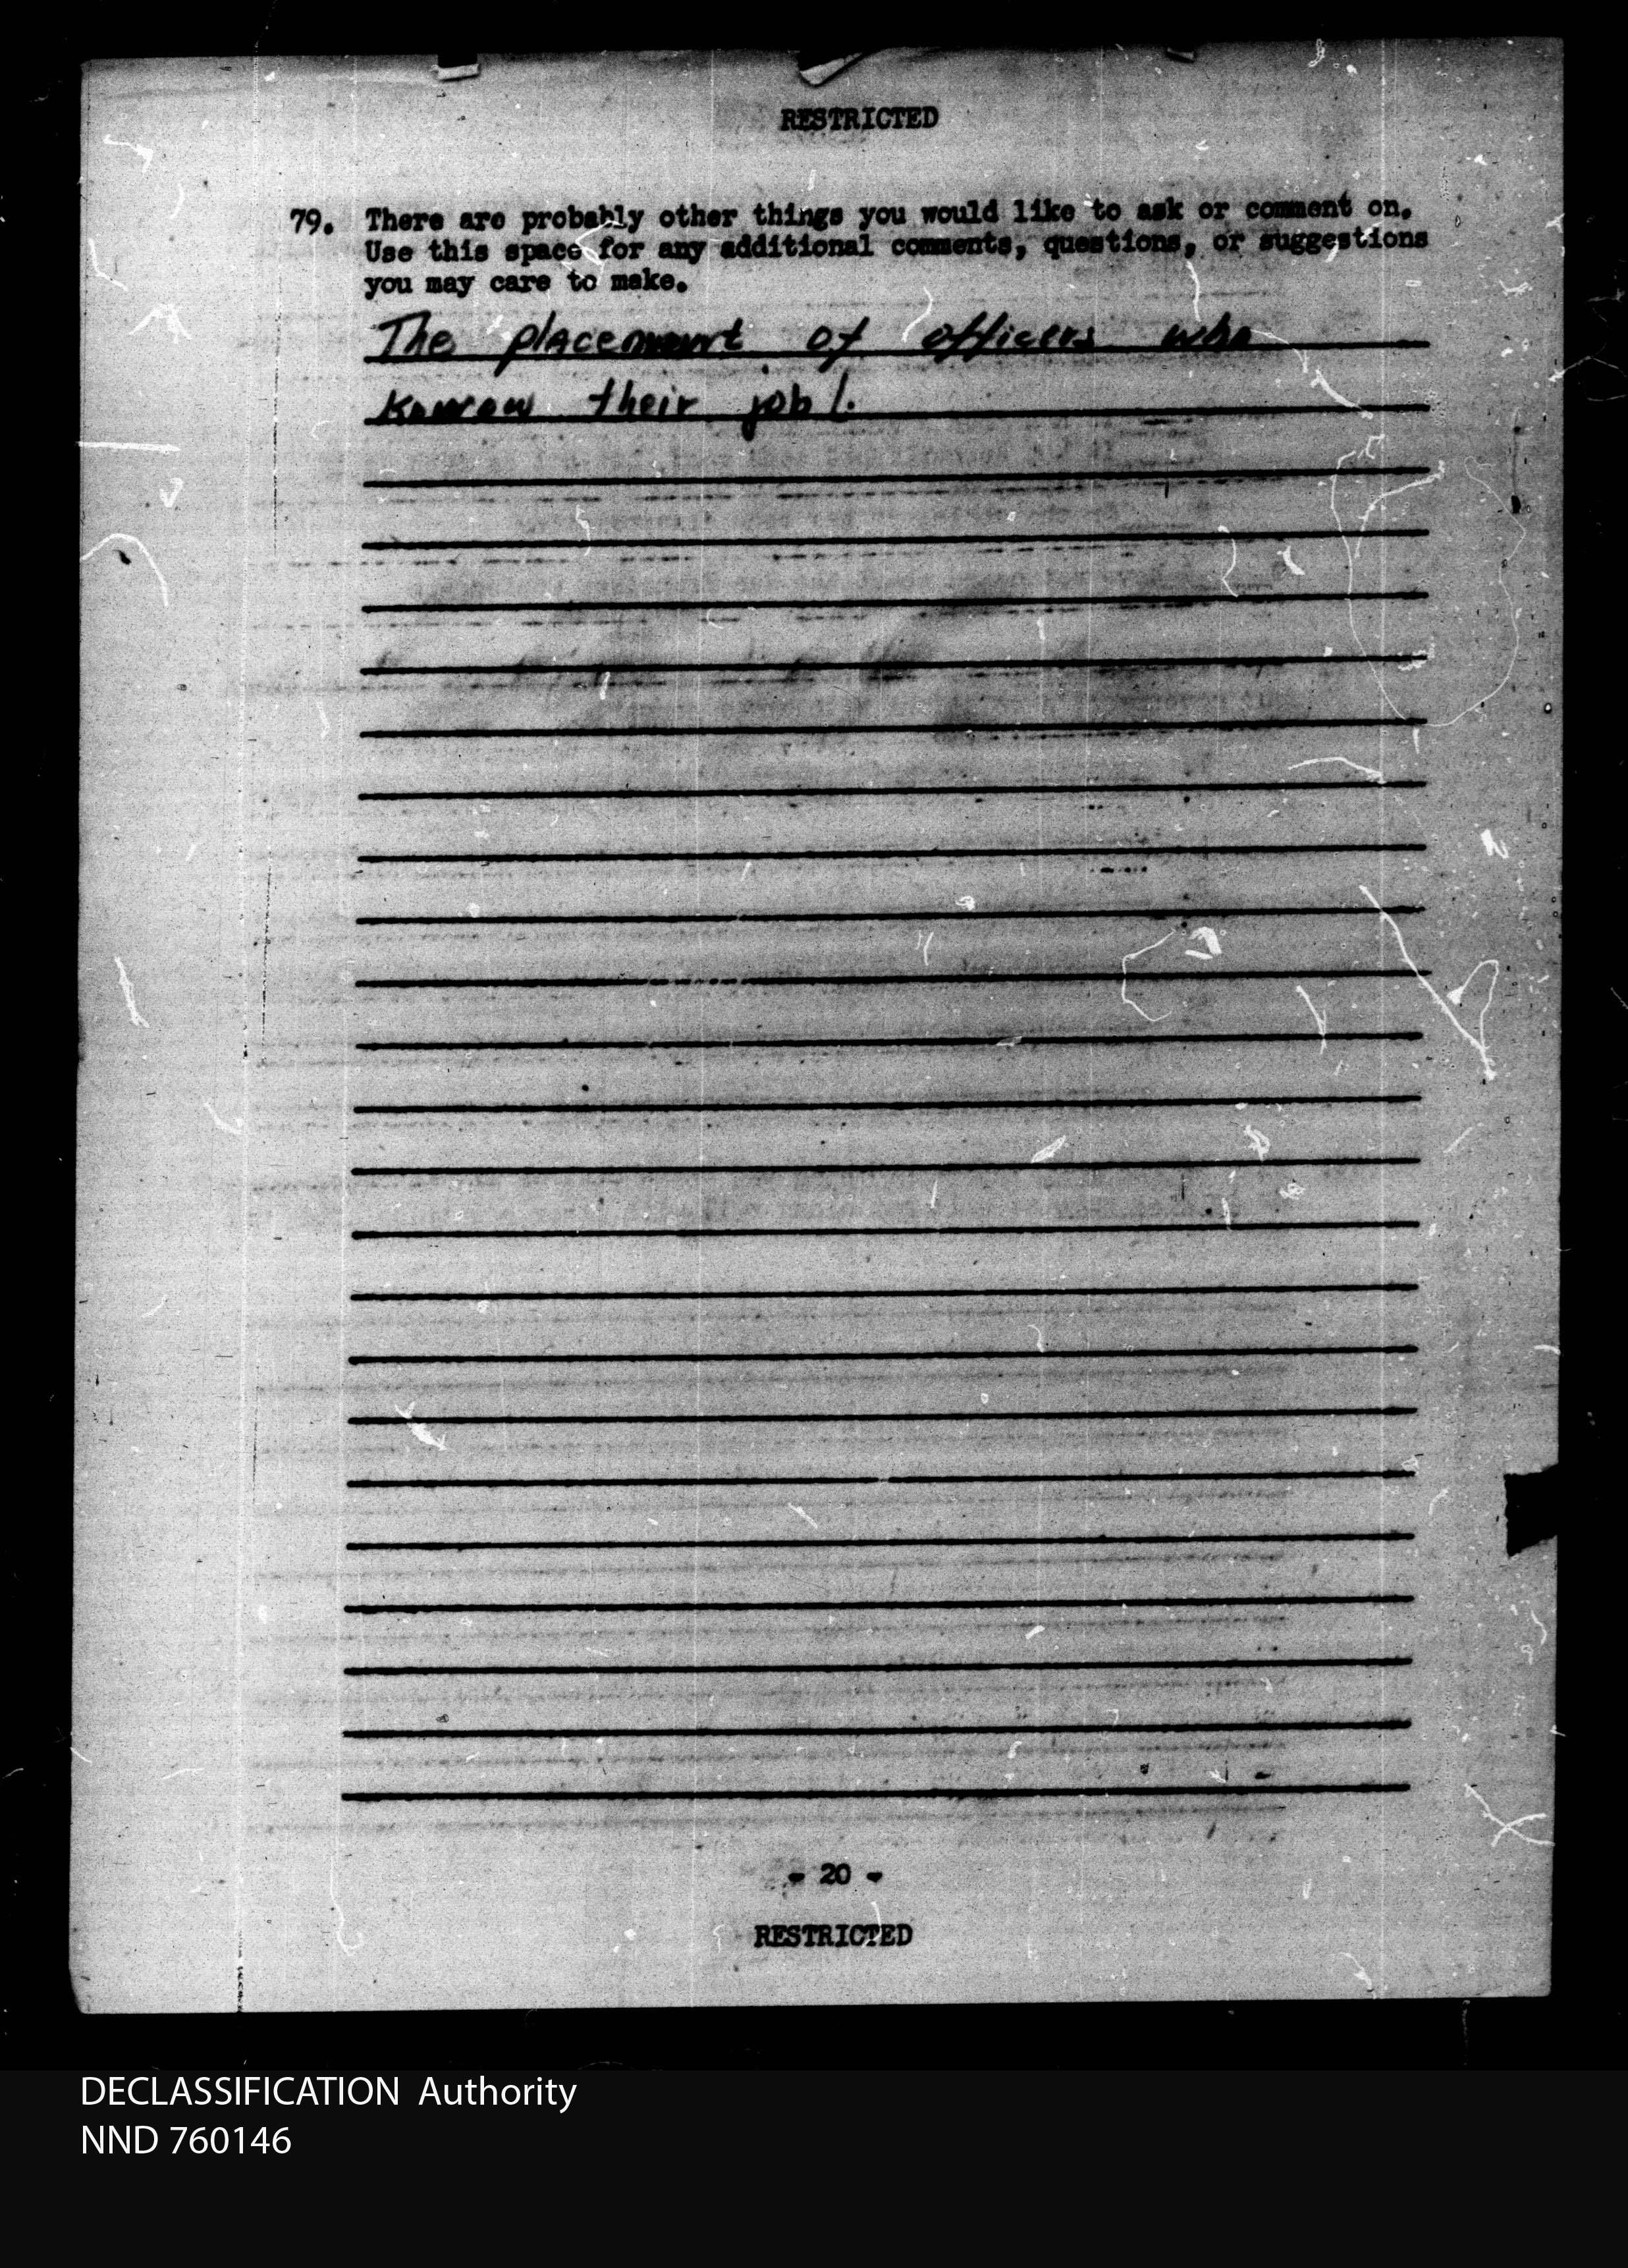 RESTRICTED
79. There are probably other things you would like to ask or comment on.
Use this space for any additional comments, questions, or suggestions
you may care to make.
The placement of officers who
know their job!.
- 20 -
RESTRICTED
DECLASSIFICATION Authority
NND 760146